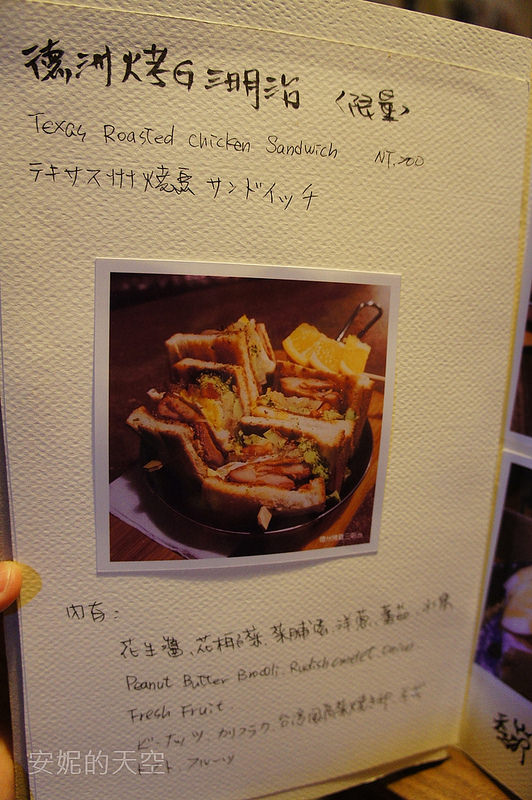 德洲烤G三明治 〈限量〉
Texas Roasted chicken Sandwich NT.200
テキサス州焼 サンドイッチ
德州烤雞三明治
內有:
花生醬、花椰菜、菜脯蛋、洋蔥、蕃茄、水果
Peanut Butter Brocoli. Rudish omelet. onion
Fresh Fruit.
ピーナッツ、カリフラワ、台湾風
フルーツ
安妮的天空